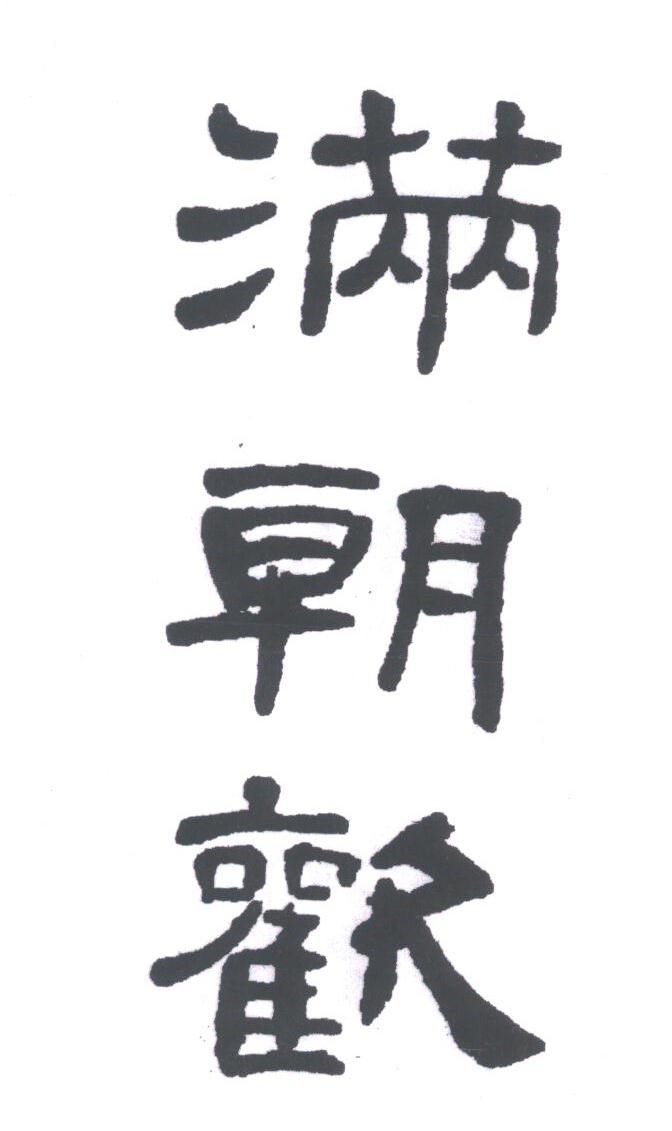 滿朝歡